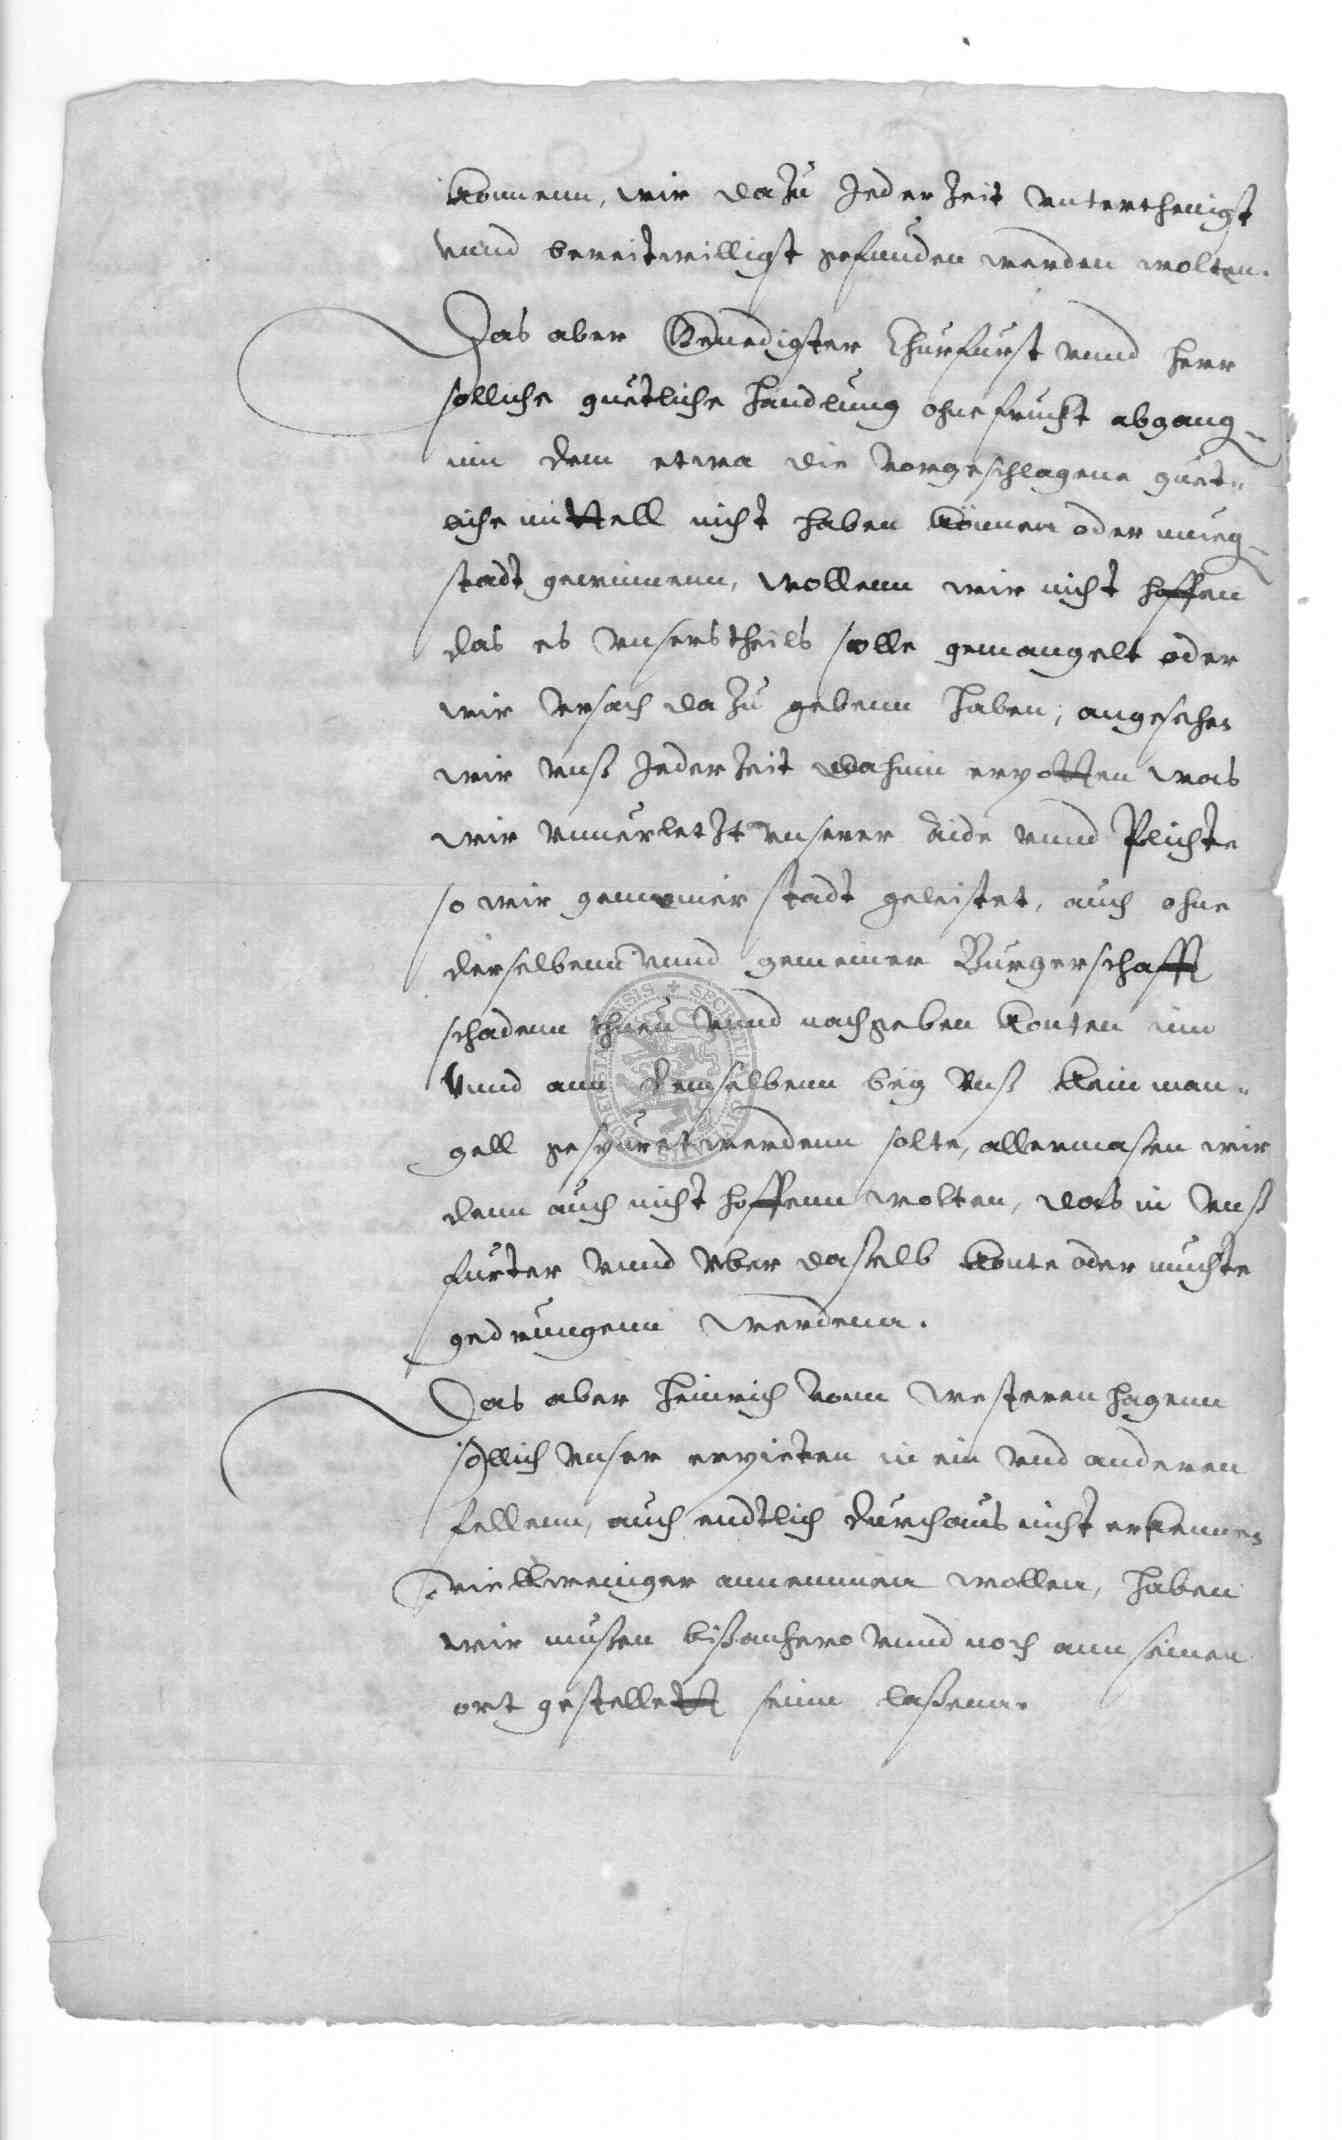 konnenn, wir dazu Jederzeit vnterthenigst
vnnd bereitwilligst gefunden werden wolten.
Das aber Genedigster Churfurst vnnd Herr
solliche guetliche Handlung ohne frucht abgang-
inn dem etwa die vorgeschlagene guet-
liche mittell nicht haben können oder mueg-
stadt gewinnenn, wollenn wir nicht hoffen
das es vnserstheils solle gemangelt oder
wir Vrsach dazu gebenn haben, angesehen
wir vnß Jederzeit dahinn erpotten was
wir vnuerletzt vnserer Aide vnnd Plichte
so wir gemeiner stadt geleistet, auch ohne
derselbenn vnnd gemeiner Burgerschafft
schadenn thuen vnnd nachgeben konten inn
Vnnd ann demselbenn bey Vnß kein man-
gell gespuret werdenn solte, allermaßen wir
denn auch nicht hoffenn wolten, das in Vnß
furter vnnd vber daßelb konte oder muchte
gedrungenn werdenn.
Das aber Heinrich vonn Westerenhagenn
sollich vnser erpieten in ein vnd anderen
fellenn, auch endtlich durchaus nicht erkennen
viellweniger annemmen wollen, haben
wir mußen bißanhero vnnd noch ann seinen
ort gestellett seinn laßenn.
SECRETUM